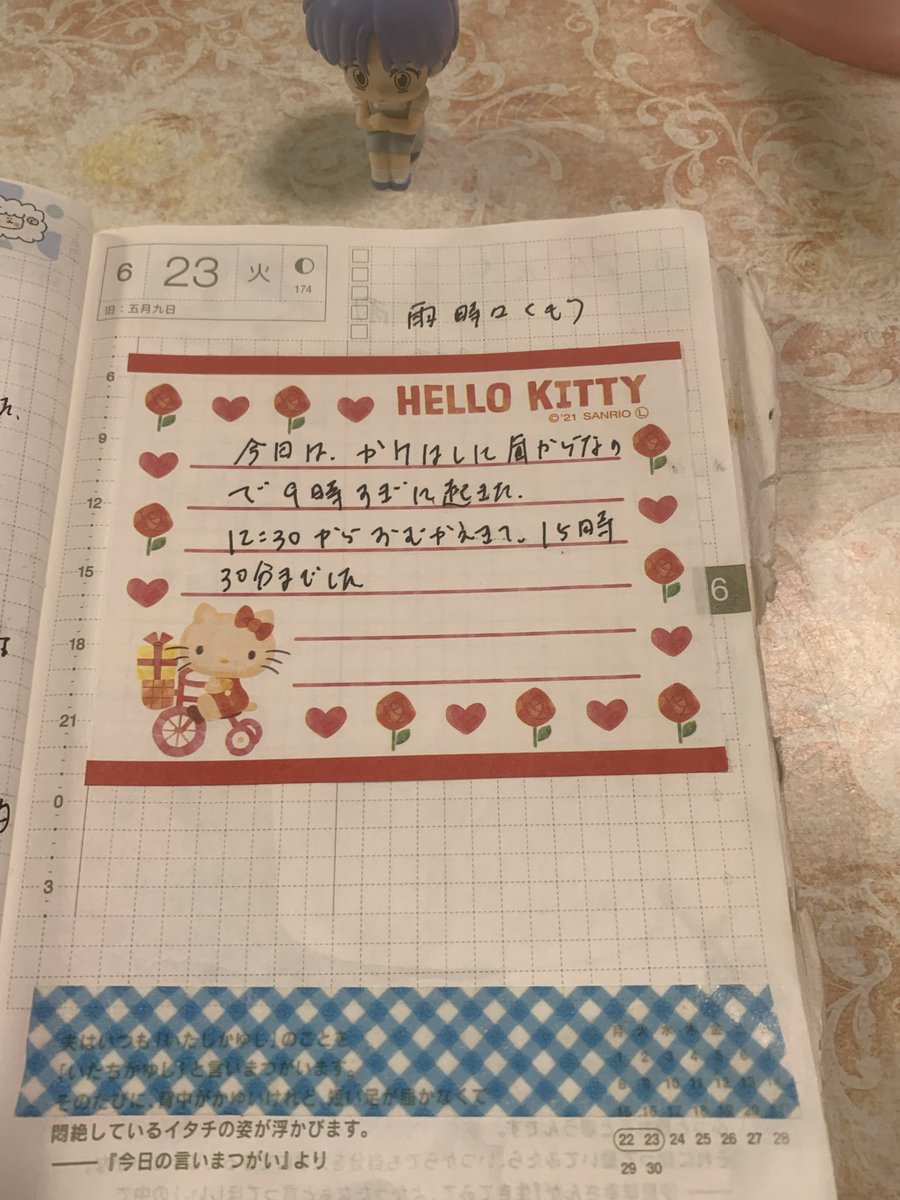 6 23 火
174
旧：五月九日
雨 時々くもり
6
HELLO KITTY
©'21 SANRIO Ⓛ
9
今日は、かけはしに
12
で9時までに起きた。
12:30から 15時
15
30分までした
6
18
21
0
3
実はいつも「いたしかゆし」のことを
「いたちかゆし」と言いまつがいます。
そのたびに、背中がかゆいけれど、短い足が届かなくて
悶絶しているイタチの姿が浮かびます。
──『今日の言いまつがい』より
月 火 水 木 金
1 2 3 4 5 6
8 9 10 11 12 13 14
15 16 17 18 19 20
22 23 24 25 26 27 28
29 30